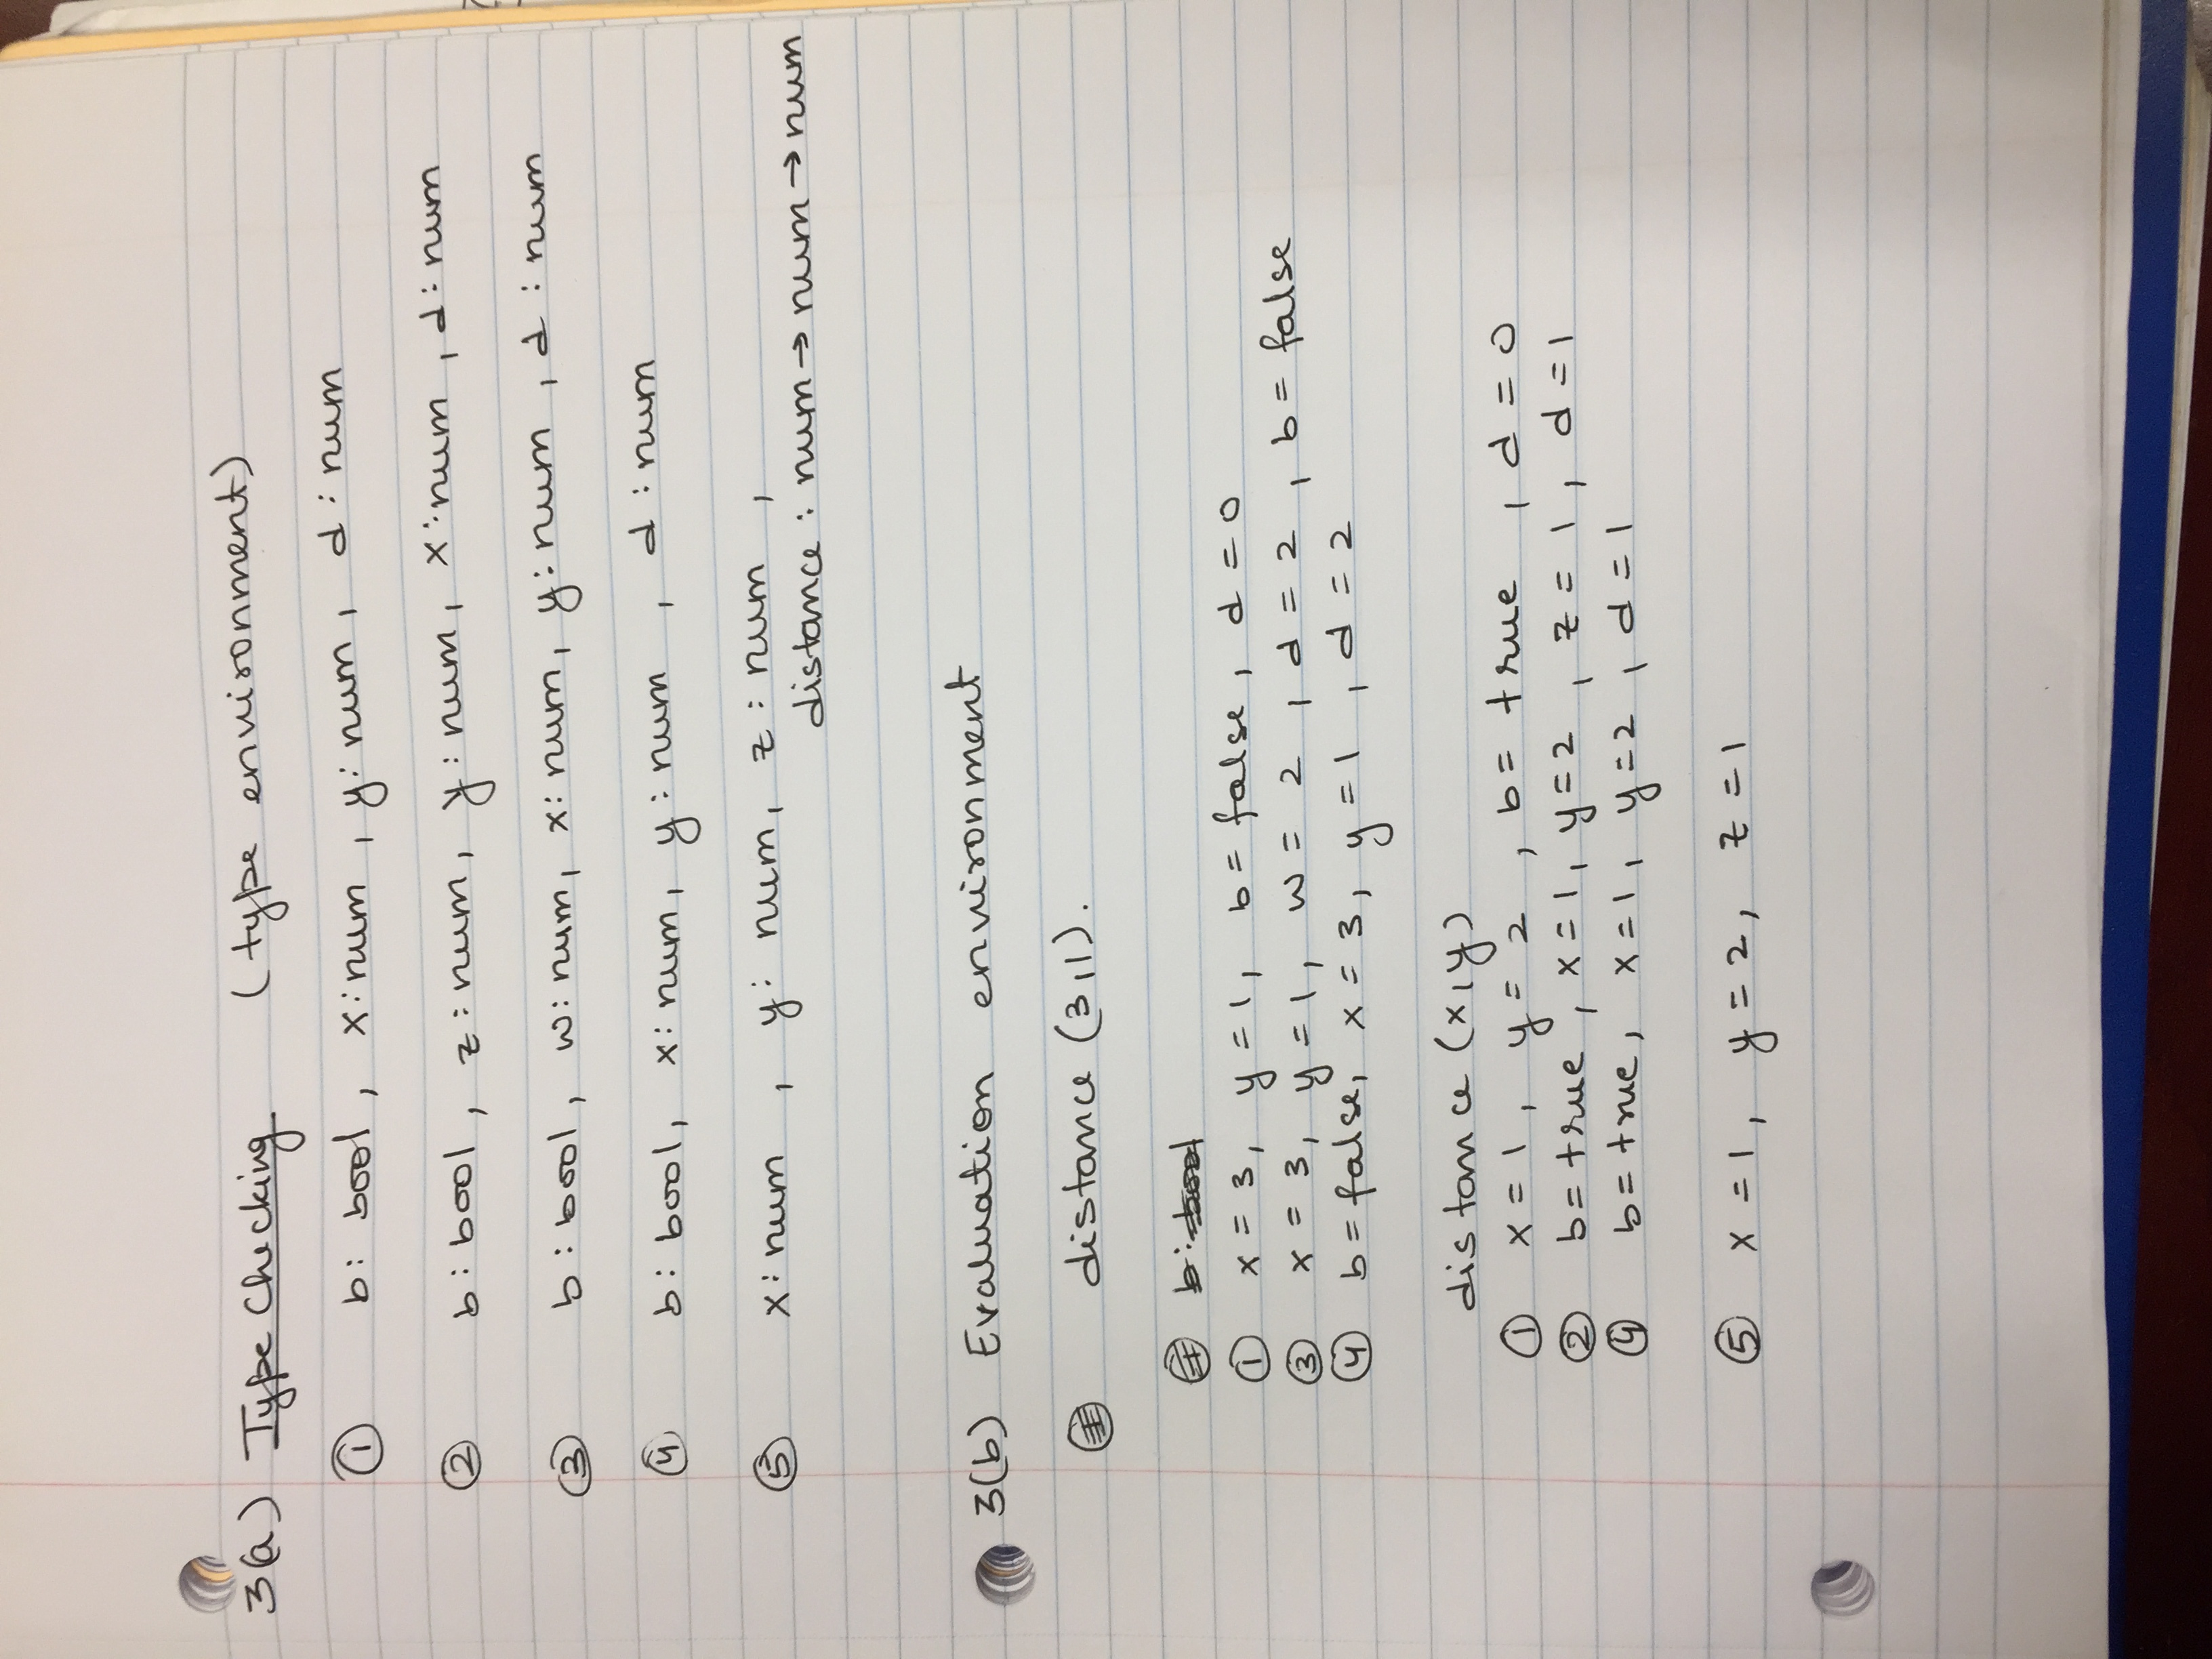 3(a) Type Checking (type environment)
① b: bool, x: num, y: num, d: num
② b: bool, z: num, y: num, x: num, d: num
③ b: bool, w: num, x: num, y: num, d: num
④ b: bool, x: num, y: num, d: num
⑤ x: num, y: num, z: num,
distance: num → num → num
3(b) Evaluation environment
distance (3,1).
b: bool
① x = 3, y = 1, b = false, d = 0
③ x = 3, y = 1, w = 2, d = 2, b = false
④ b = false, x = 3, y = 1, d = 2
distance (x,y)
① x = 1, y = 2, b = true, d = 0
② b = true, x = 1, y = 2, z = 1, d = 1
④ b = true, x = 1, y = 2, d = 1
⑤ x = 1, y = 2, z = 1